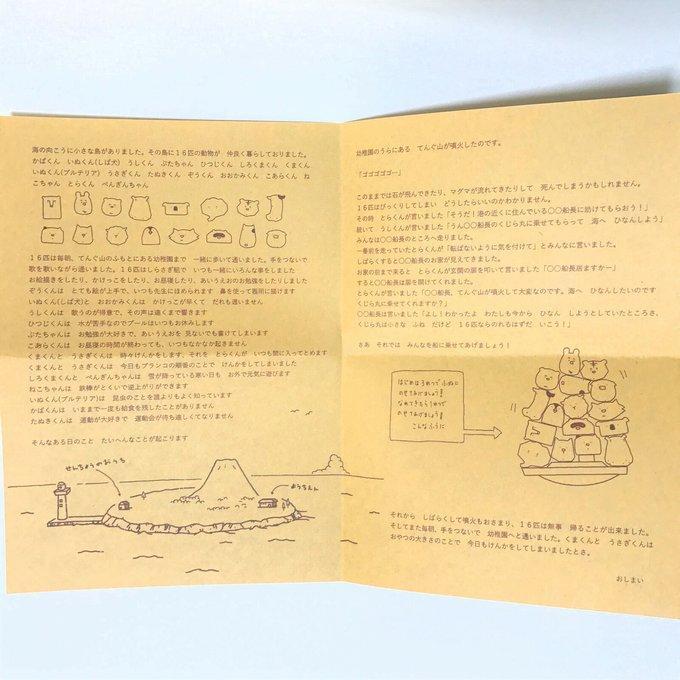 海の向こうに小さな島がありました。その島に16匹の動物が　仲良く暮らしておりました。
かばくん　いぬくん(しば犬)　うしくん　ぶたちゃん　ひつじくん　しろくまくん　くまくん
いぬくん(ブルテリア)　うさぎくん　たぬきくん　ぞうくん　おおかみくん　こあらくん　ね
こちゃん　とらくん　ぺんぎんちゃん
16匹は毎朝、てんぐ山のふもとにある幼稚園まで　一緒に歩いて通いました。手をつないで
歌を歌いながら通いました。16匹はしらさぎ組で　いつも一緒にいろんな事をしました
お絵描きをしたり、かけっこをしたり、お昼寝したり、あいうえおのお勉強をしたりしました
ぞうくんは　とても絵が上手で、いつも先生にほめられます　鼻を使って器用に描けます
いぬくん(しば犬)と　おおかみくんは　かけっこが早くて　だれも追いません
うしくんは　歌うのが得意で、その声は遠くまで響きます
ひつじくんは　水が苦手なのでプールはいつもお休みします
ぶたちゃんは　お勉強が大好きで、あいうえおを　見ないでも書けてしまいます
こあらくんは　お昼寝の時間が終わっても、いつもなかなか起きません
くまくんと　うさぎくんは　時々けんかをします、それを　とらくんが　いつも間に入ってとめます
くまくんと　うさぎくんは　今日もブランコの順番のことで　けんかをしてしまいました
しろくまくんと　ぺんぎんちゃんは　雪が降っている寒い日も　お外で元気に遊びます
ねこちゃんは　鉄棒がとくいで逆上がりができます
いぬくん(ブルテリア)は　昆虫のことを誰よりもよく知っています
かばくんは　いままで一度も給食を残したことがありません
たぬきくんは　運動が大好きで　運動会が待ち遠しくてなりません
そんなある日のこと　たいへんなことが起こります
せんちょうのおうち
ようちえん
幼稚園のうらにある　てんぐ山が噴火したのです。
「ゴゴゴゴゴー」
このままでは石が飛んできたり、マグマが流れてきたりして　死んでしまうかもしれません。
16匹はびっくりしてしまい　どうしたらいいのかわかりません。
その時　とらくんが言いました「そうだ！港の近くに住んでいる〇〇船長に助けてもらおう！」
続いて　うしくんが言いました「うん〇〇船長のくじら丸に乗せてもらって　海へ　ひなんしよう」
みんなは〇〇船長のところへ走りました。
一番前を走っていたとらくんが「転ばないように気を付けて」とみんなに言いました。
しばらくすると〇〇船長のお家が見えてきました。
お家の前まで来ると　とらくんが玄関の扉を叩いて言いました「〇〇船長居ますかー」
すると〇〇船長は扉を開けてくれました。
とらくんが言いました「〇〇船長、てんぐ山が噴火して大変なのです。海へ　ひなんしたいのです
くじら丸に乗せてくれますか？」
〇〇船長は言いました「よし！わかったよ　わたしも今から　ひなん　しようとしていたところさ、
くじら丸は小さな　ふね　だけど　16匹ならのれるはずだ　いこう！」
さあ　それでは　みんなを船に乗せてあげましょう！
はじめはうめつで ふねに
のせてみましょう！
なれてきたらりょうめつで
のせてみましょう！
こんなふうに
それから　しばらくして噴火もおさまり、16匹は無事　帰ることが出来ました。
そしてまた毎朝、手をつないで　幼稚園へと通いました。くまくんと　うさぎくんは
おやつの大きさのことで　今日もけんかをしてしまいましたとさ。
おしまい